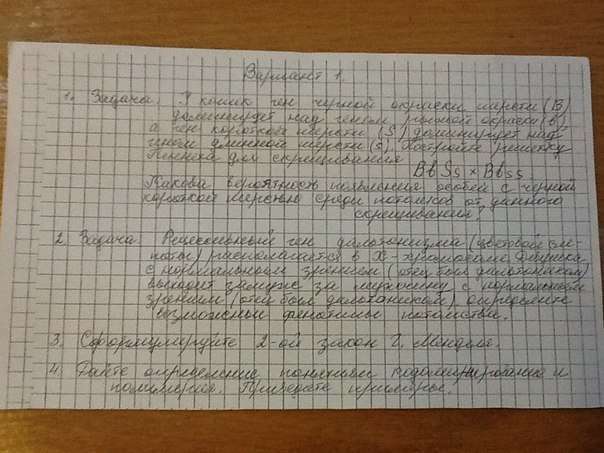 Вариант 1.
1. Задача. У кошек ген черной окраски шерсти (B)
доминирует над геном рыжей окраски (b),
а ген короткой шерсти (S) доминирует над
геном длинной шерсти (s). Постройте решетку
Пеннета для скрещивания
BbSs × Bbss.
Какова вероятность появления особей с черной
короткой шерстью среди потомков от данного
скрещивания?
2. Задача. Рецессивный ген дальтонизма (цветовой сле-
поты) располагается в X-хромосоме. Девушка
с нормальным зрением (отец был дальтоником)
выходит замуж за мужчину с нормальным
зрением (отец был дальтоником). Определите
возможные фенотипы потомства.
3. Сформулируйте 2-ой закон Г. Менделя.
4. Дайте определение понятиям кодоминирование и
полимерия. Приведите примеры.